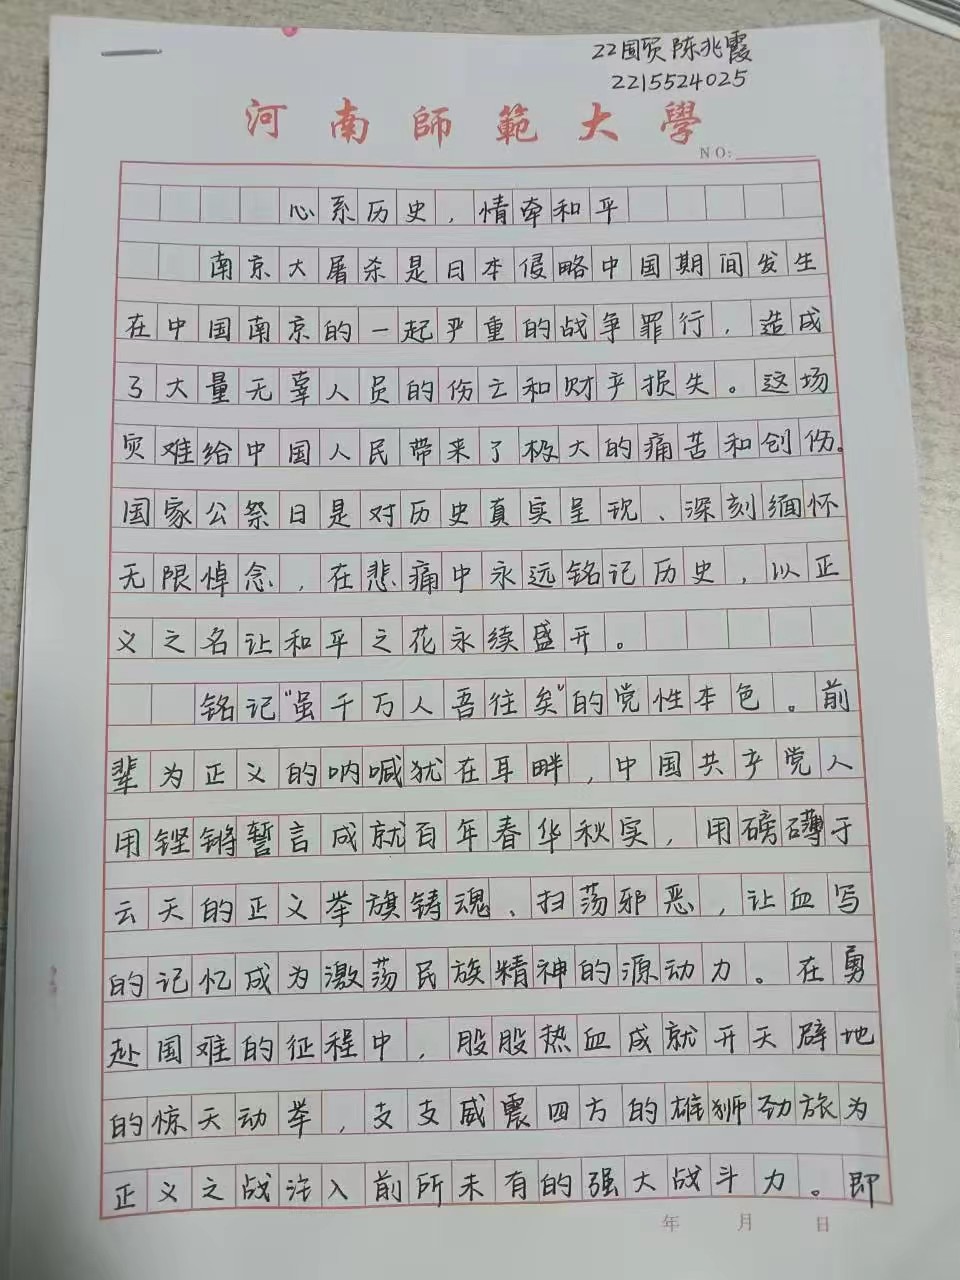 22国贸 陈兆霞
2215524025
河南師範大學
NO:
心系历史，情牵和平
南京大屠杀是日本侵略中国期间发生
在中国南京的一起严重的战争罪行，造成
了大量无辜人员的伤亡和财产损失。这场
灾难给中国人民带来了极大的痛苦和创伤。
国家公祭日是对历史真实呈现、深刻缅怀
无限悼念，在悲痛中永远铭记历史，以正
义之名让和平之花永续盛开。
铭记"虽千万人吾往矣"的党性本色。前
辈为正义的呐喊犹在耳畔，中国共产党人
用铿锵誓言成就百年春华秋实，用磅礴于
云天的正义举旗铸魂、扫荡邪恶，让血写
的记忆成为激荡民族精神的源动力。在勇
赴国难的征程中，股股热血成就开天辟地
的惊天动举，支支威震四方的雄狮劲旅为
正义之战注入前所未有的强大战斗力。即
年 月 日